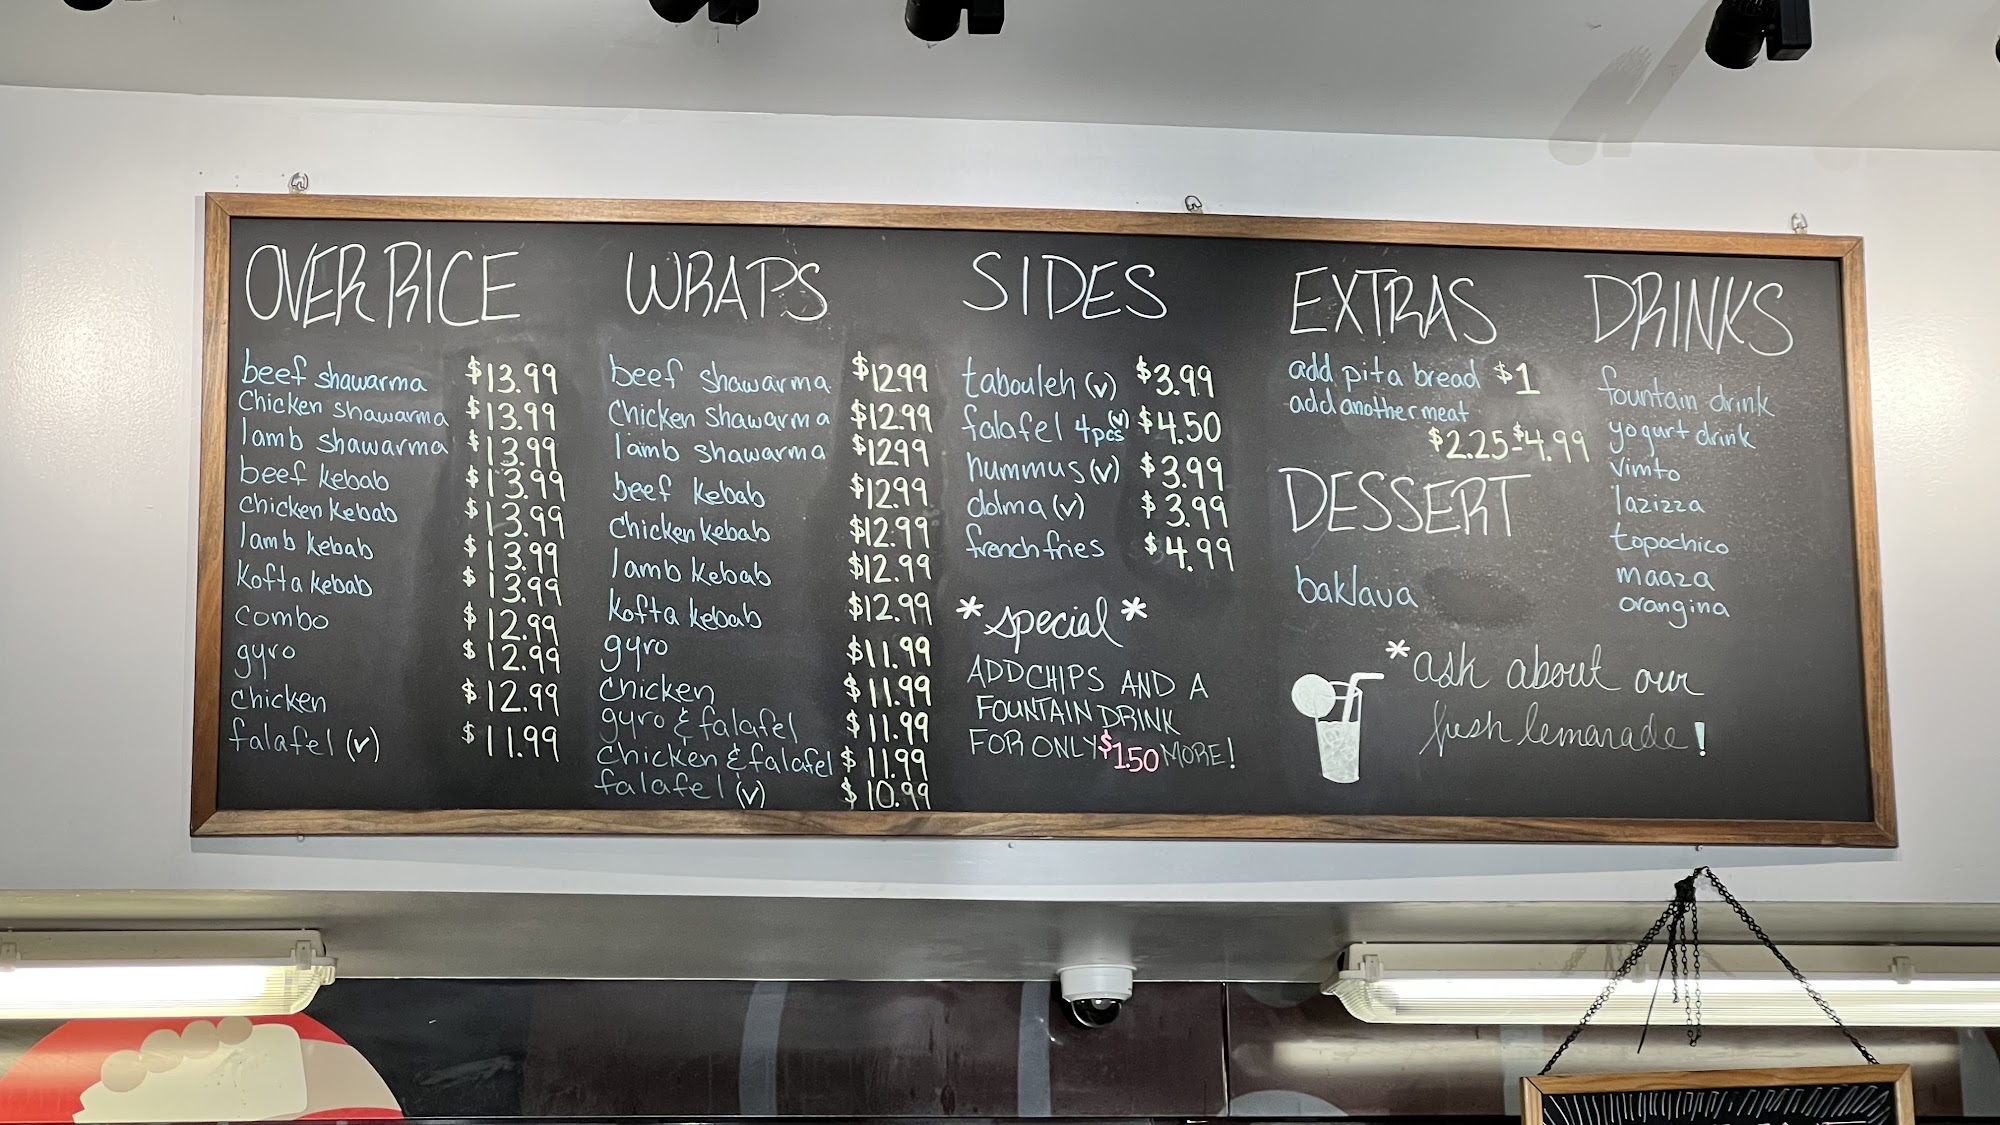 OVER RICE
beef shawarma $13.99
chicken shawarma $13.99
lamb shawarma $13.99
beef kebab $13.99
chicken kebab $13.99
lamb kebab $13.99
kofta kebab $13.99
combo $12.99
gyro $12.99
chicken $12.99
falafel (v) $11.99
WRAPS
beef shawarma $12.99
chicken shawarma $12.99
lamb shawarma $12.99
beef kebab $12.99
chicken kebab $12.99
lamb kebab $12.99
kofta kebab $12.99
gyro $11.99
chicken $11.99
gyro & falafel $11.99
chicken & falafel $11.99
falafel (v) $10.99
SIDES
tabouleh (v) $3.99
falafel 4pcs (v) $4.50
hummus (v) $3.99
dolma (v) $3.99
french fries $4.99
*special*
ADD CHIPS AND A
FOUNTAIN DRINK
FOR ONLY $1.50 MORE!
EXTRAS
add pita bread $1
add another meat
$2.25-$4.99
DESSERT
baklava
DRINKS
fountain drink
yogurt drink
vimto
lazizza
topochico
maaza
orangina
*ask about our
fresh lemanade!